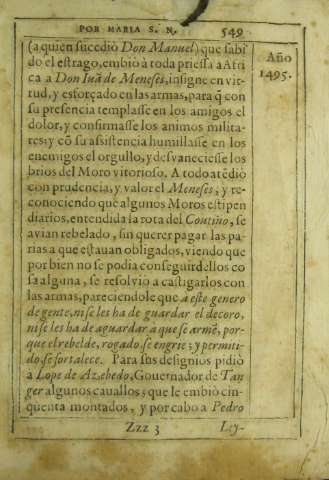 POR MARIA S. N. 549
Año
1495.
(a quien sucediò Don Manuel) que sabi
do el estrago, embiò à toda priessa a Afri
ca a Don Iuā de Meneses, insigne en vir-
tud, y esforçado en las armas, para q̃ con
su presencia templasse en los amigos el
dolor, y confirmasse los animos milita-
res; y cõ su assistencia humillasse en los
enemigos el orgullo, y desvaneciesse los
brios del Moro vitorioso. A todo atēdiò
con prudencia, y valor el Meneses, y re-
conociendo que algunos Moros estipen
diarios, entendida la rota del Coutiño, se
avian rebelado, sin querer pagar las pa-
rias a que estauan obligados, viendo que
por bien no se podia conseguir dellos co
sa alguna, se resolviò a castigarlos con
las armas, pareciendole que a este genero
de gente, ni se les ha de guardar el decoro,
ni se les ha de aguardar a que se armē, por-
que el rebelde, rogado se engrie; y permiti-
do, se fortalece. Para sus designios pidiò
a Lope de Azebedo, Gouernador de Tan
ger algunos cauallos; que le embiò cin-
quenta montados, y por cabo a Pedro
Zzz 3 Ley-